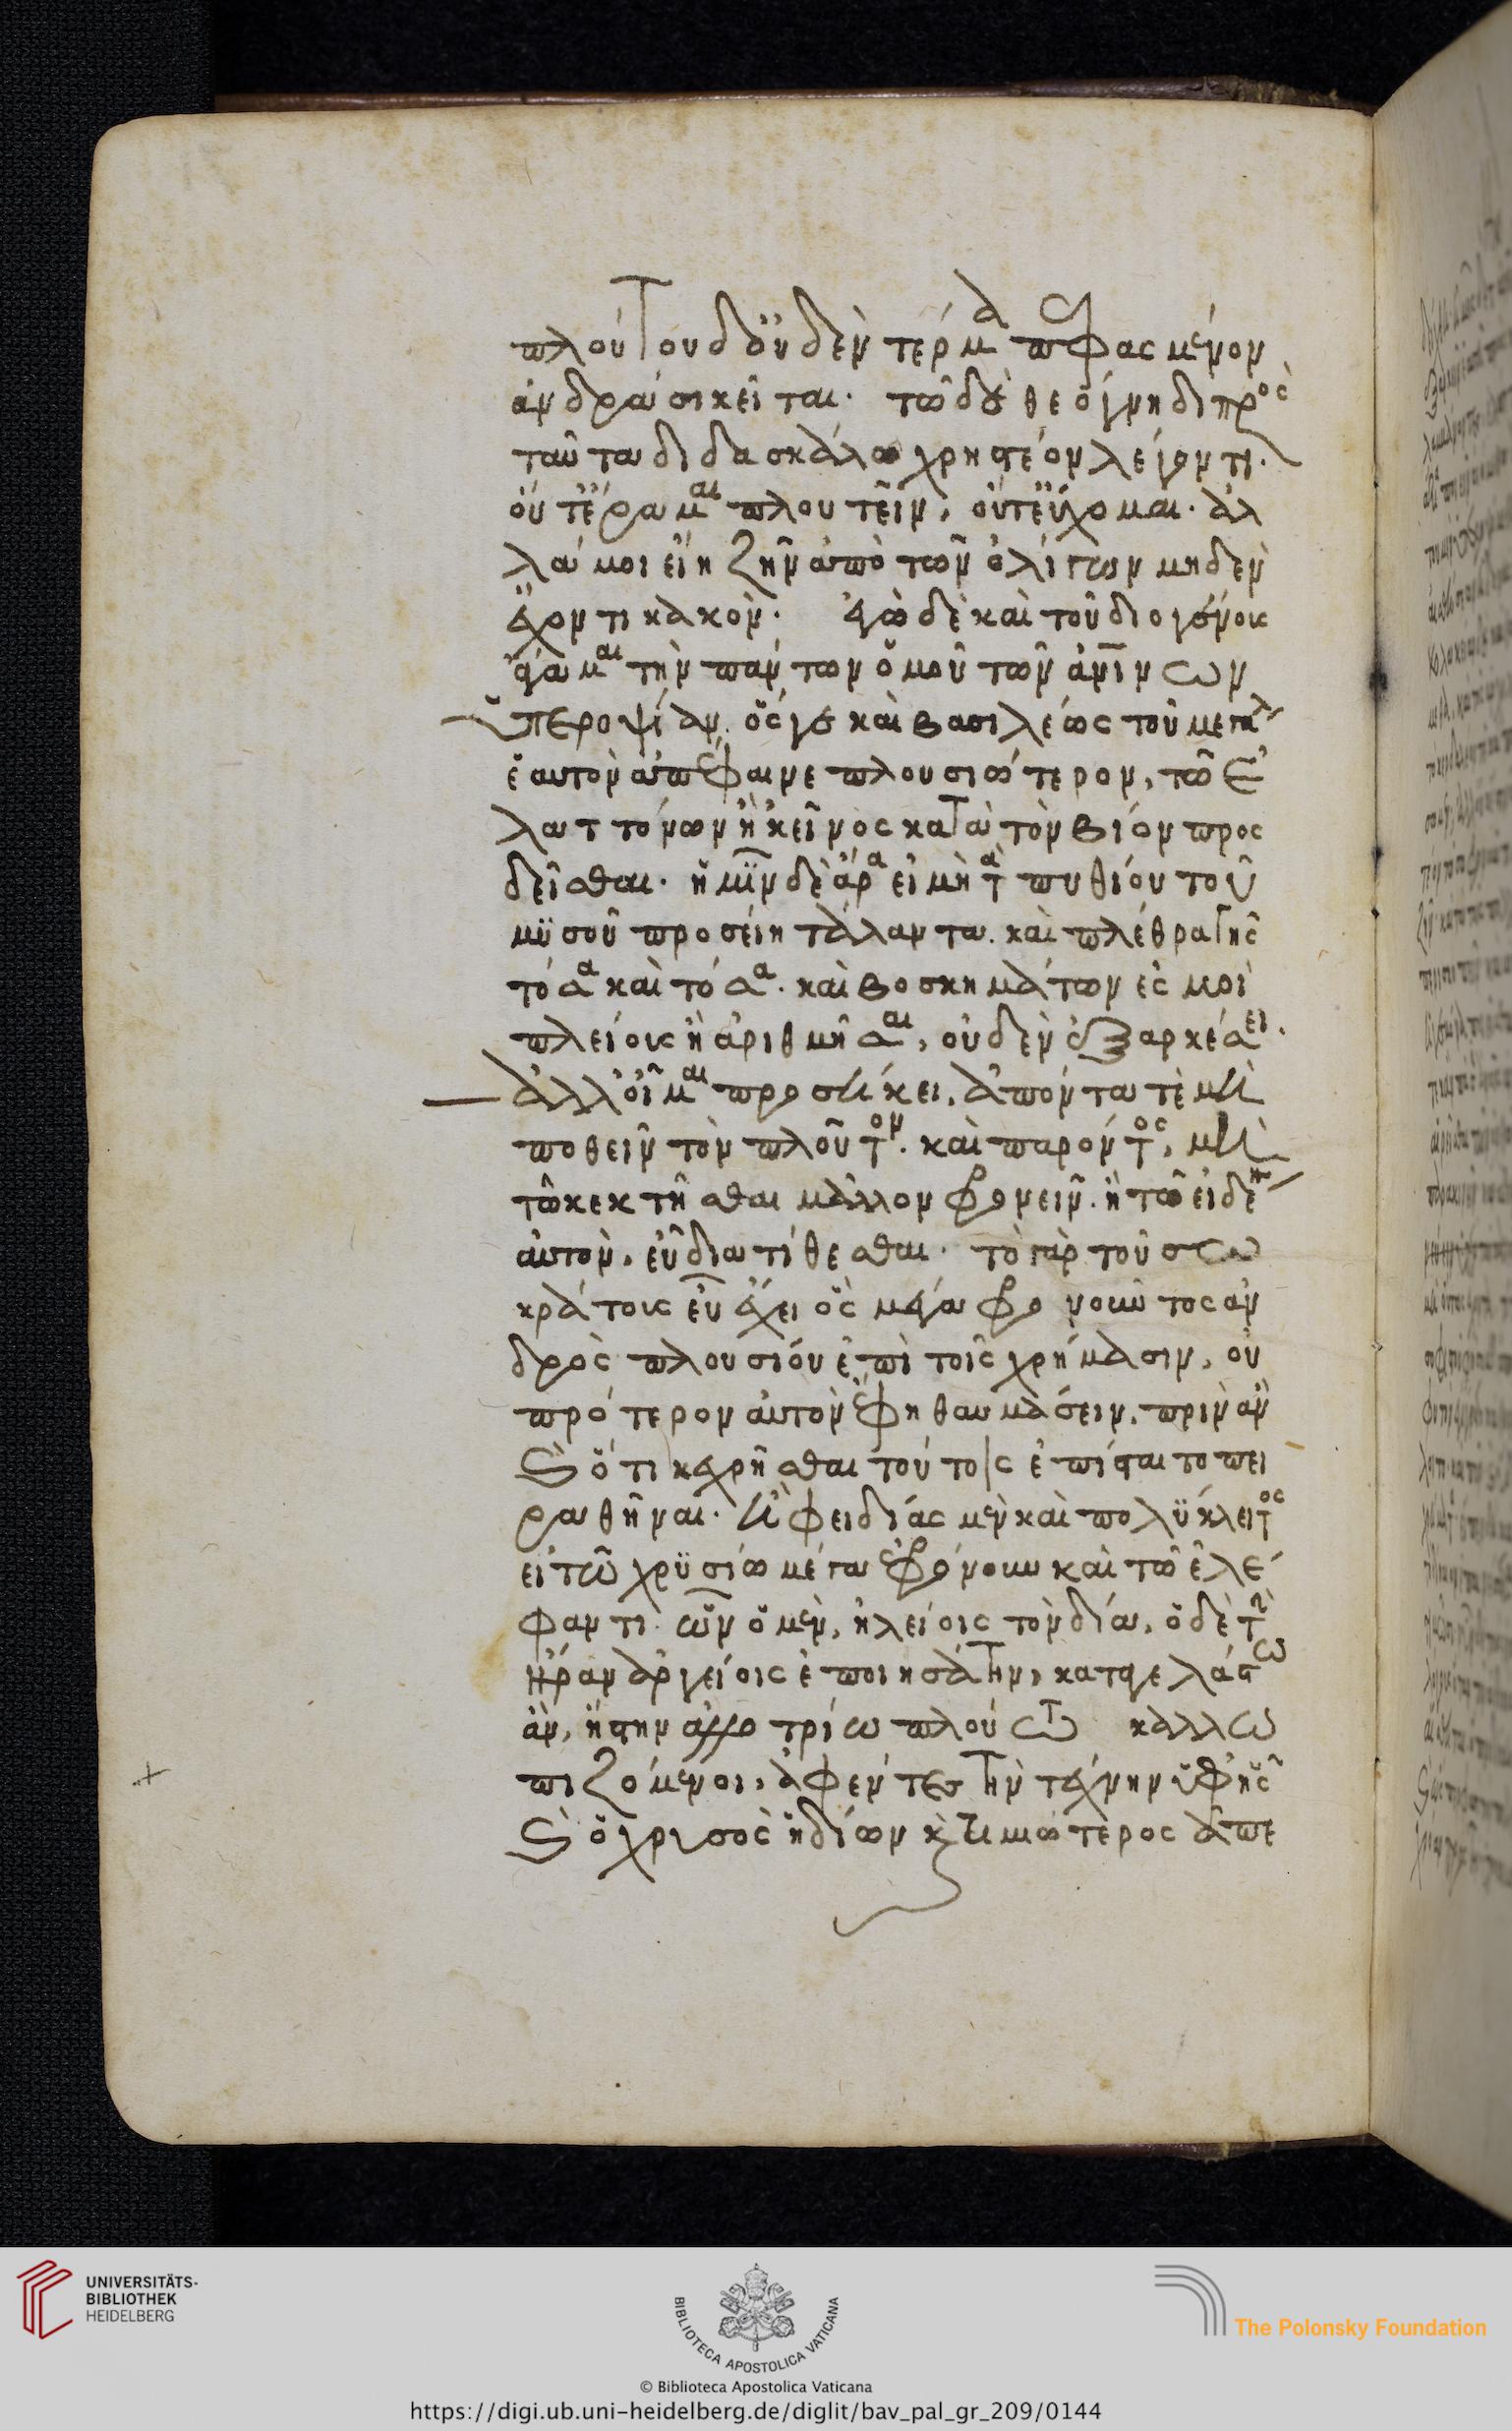 πλούτου δ' οὐδὲν τέρμα πεφασμένον
ἀνδράσι κεῖται. τῷ δὲ Θεόγνηδι πρὸς
ταῦτα διδασκάλῳ χρηστέον λέγοντι.
οὔτ' ἔραμαι πλουτεῖν, οὔτ' εὔχομαι. ἀλ
λά μοι εἴη ζῆν ἀπὸ τῶν ὀλίγων μηδὲν
ἔχοντι κακόν. ἐγὼ δὲ καὶ τοῦ Διογένους
ἄγαμαι τὴν πάντων ὁμοῦ τῶν ἀνθρωπίνων
ὑπεροψίαν. ὅς γε καὶ βασιλέως τοῦ μεγάλου
ἑαυτὸν ἀπέφαινε πλουσιώτερον, τῷ ἐ
λαττόνων ἢ 'κεῖνος κατὰ τὸν βίον προς
δεῖσθαι. ἡμῖν δὲ ἄρα εἰ μὴ τὰ Πυθίου τοῦ
Μυσοῦ προσείη τάλαντα. καὶ πλέθρα γῆς
τόσα καὶ τόσα. καὶ βοσκημάτων ἐσμοὶ
πλείους ἢ ἀριθμῆσαι, οὐδὲν ἐξαρκέσει.
ἀλλ' οἶμαι προσήκει, ἀπόντα τε μὴ
ποθεῖν τὸν πλοῦτον. καὶ παρόντος, μὴ
τῷ κεκτῆσθαι μᾶλλον φρονεῖν. ἢ τῷ εἰδέναι
αὐτὸν, εὖ διατίθεσθαι. τὸ γὰρ τοῦ Σω
κράτους εὖ ἔχει ὃς μέγα φρονοῦντος ἀν
δρὸς πλουσίου ἐπὶ τοῖς χρήμασιν, οὐ
πρότερον αὐτὸν ἔφη θαυμάσειν, πρὶν ἂν
καὶ ὅτι κεχρῆσθαι τούτοις ἐπίσταιτο πει
ραθῆναι. ἢ Φειδίας μὲν καὶ Πολύκλειτος
εἰ τῷ χρυσίῳ μέγα ἐφρόνουν καὶ τῷ ἐλέ
φαντι. ὧν ὁ μὲν, Ἠλείοις τὸν Δία, ὁ δὲ τὴν
Ἥραν Ἀργείοις ἐποιησάτην, καταγελάστω
ἂν, ἤστην ἀλλοτρίῳ πλούτῳ καλλω
πιζόμενοι, ἀφέντες τὴν τέχνην ὑφ' ἧς
καὶ ὁ χρυσὸς ἡδίων καὶ τιμιώτερος ἀπε
UNIVERSITÄTS-
BIBLIOTHEK
HEIDELBERG
BIBLIOTECA APOSTOLICA VATICANA
The Polonsky Foundation
© Biblioteca Apostolica Vaticana
https://digi.ub.uni-heidelberg.de/diglit/bav_pal_gr_209/0144